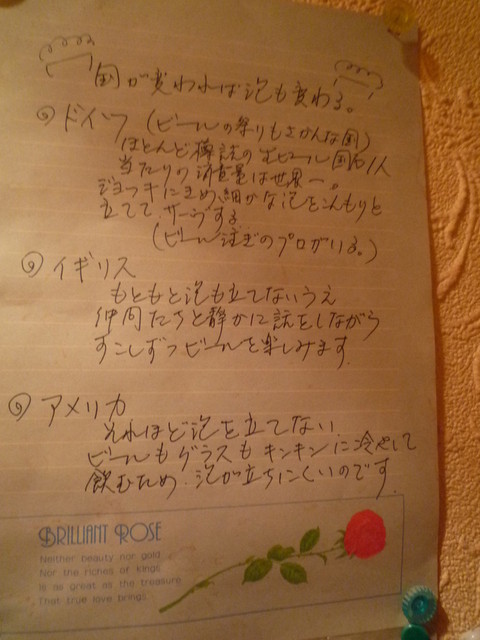 国が変われば泡も変わる。
ドイツ (ビールの祭りもさかんな国)
ほとんど樽詰の生ビール 国民1人
当たりの消費量は世界一。
ジョッキにきめ細かな泡をこんもりと
立てて サーブする
(ビール注ぎのプロがいる。)
イギリス
もともと泡も立てないうえ
仲間たちと静かに話をしながら
すこしずつビールを楽しみます
アメリカ
それほど泡を立てない
ビールもグラスもキンキンに冷やして
飲むため 泡が立ちにくいのです
BRILLIANT ROSE
Neither beauty nor gold
Nor the riches of kings
Is as great as the treasure
That true love brings.